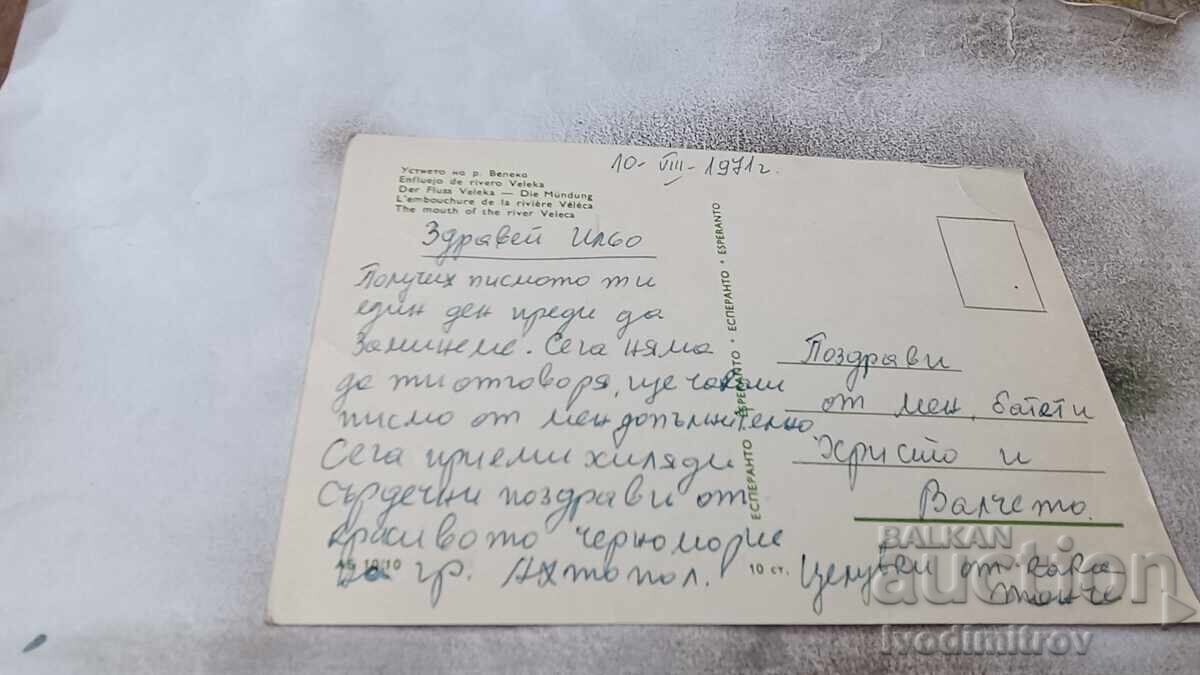 10-VIII-1971г.
Устието на р. Велека
Enfluejo de rivero Veleka
Der Fluss Veleka — Die Mündung
L'embouchure de la rivière Véléca
The mouth of the river Veleca
Здравей Ильо
Получих писмото ти
един ден преди да
заминеме. Сега няма
да ти отговоря, ще чакаш
писмо от мен допълнително
Сега приеми хиляди
сърдечни поздрави от
красивото черноморие
на гр. Ахтопол.
АБ 10/10
10 ст.
ЕСПЕРАНТО • ESPERANTO • ЕСПЕРАНТО • ESPERANTO
Поздрави
от мен, батети
Христо и
Валчето.
Целувки от кака
BALKAN
auction
ivodimitrov